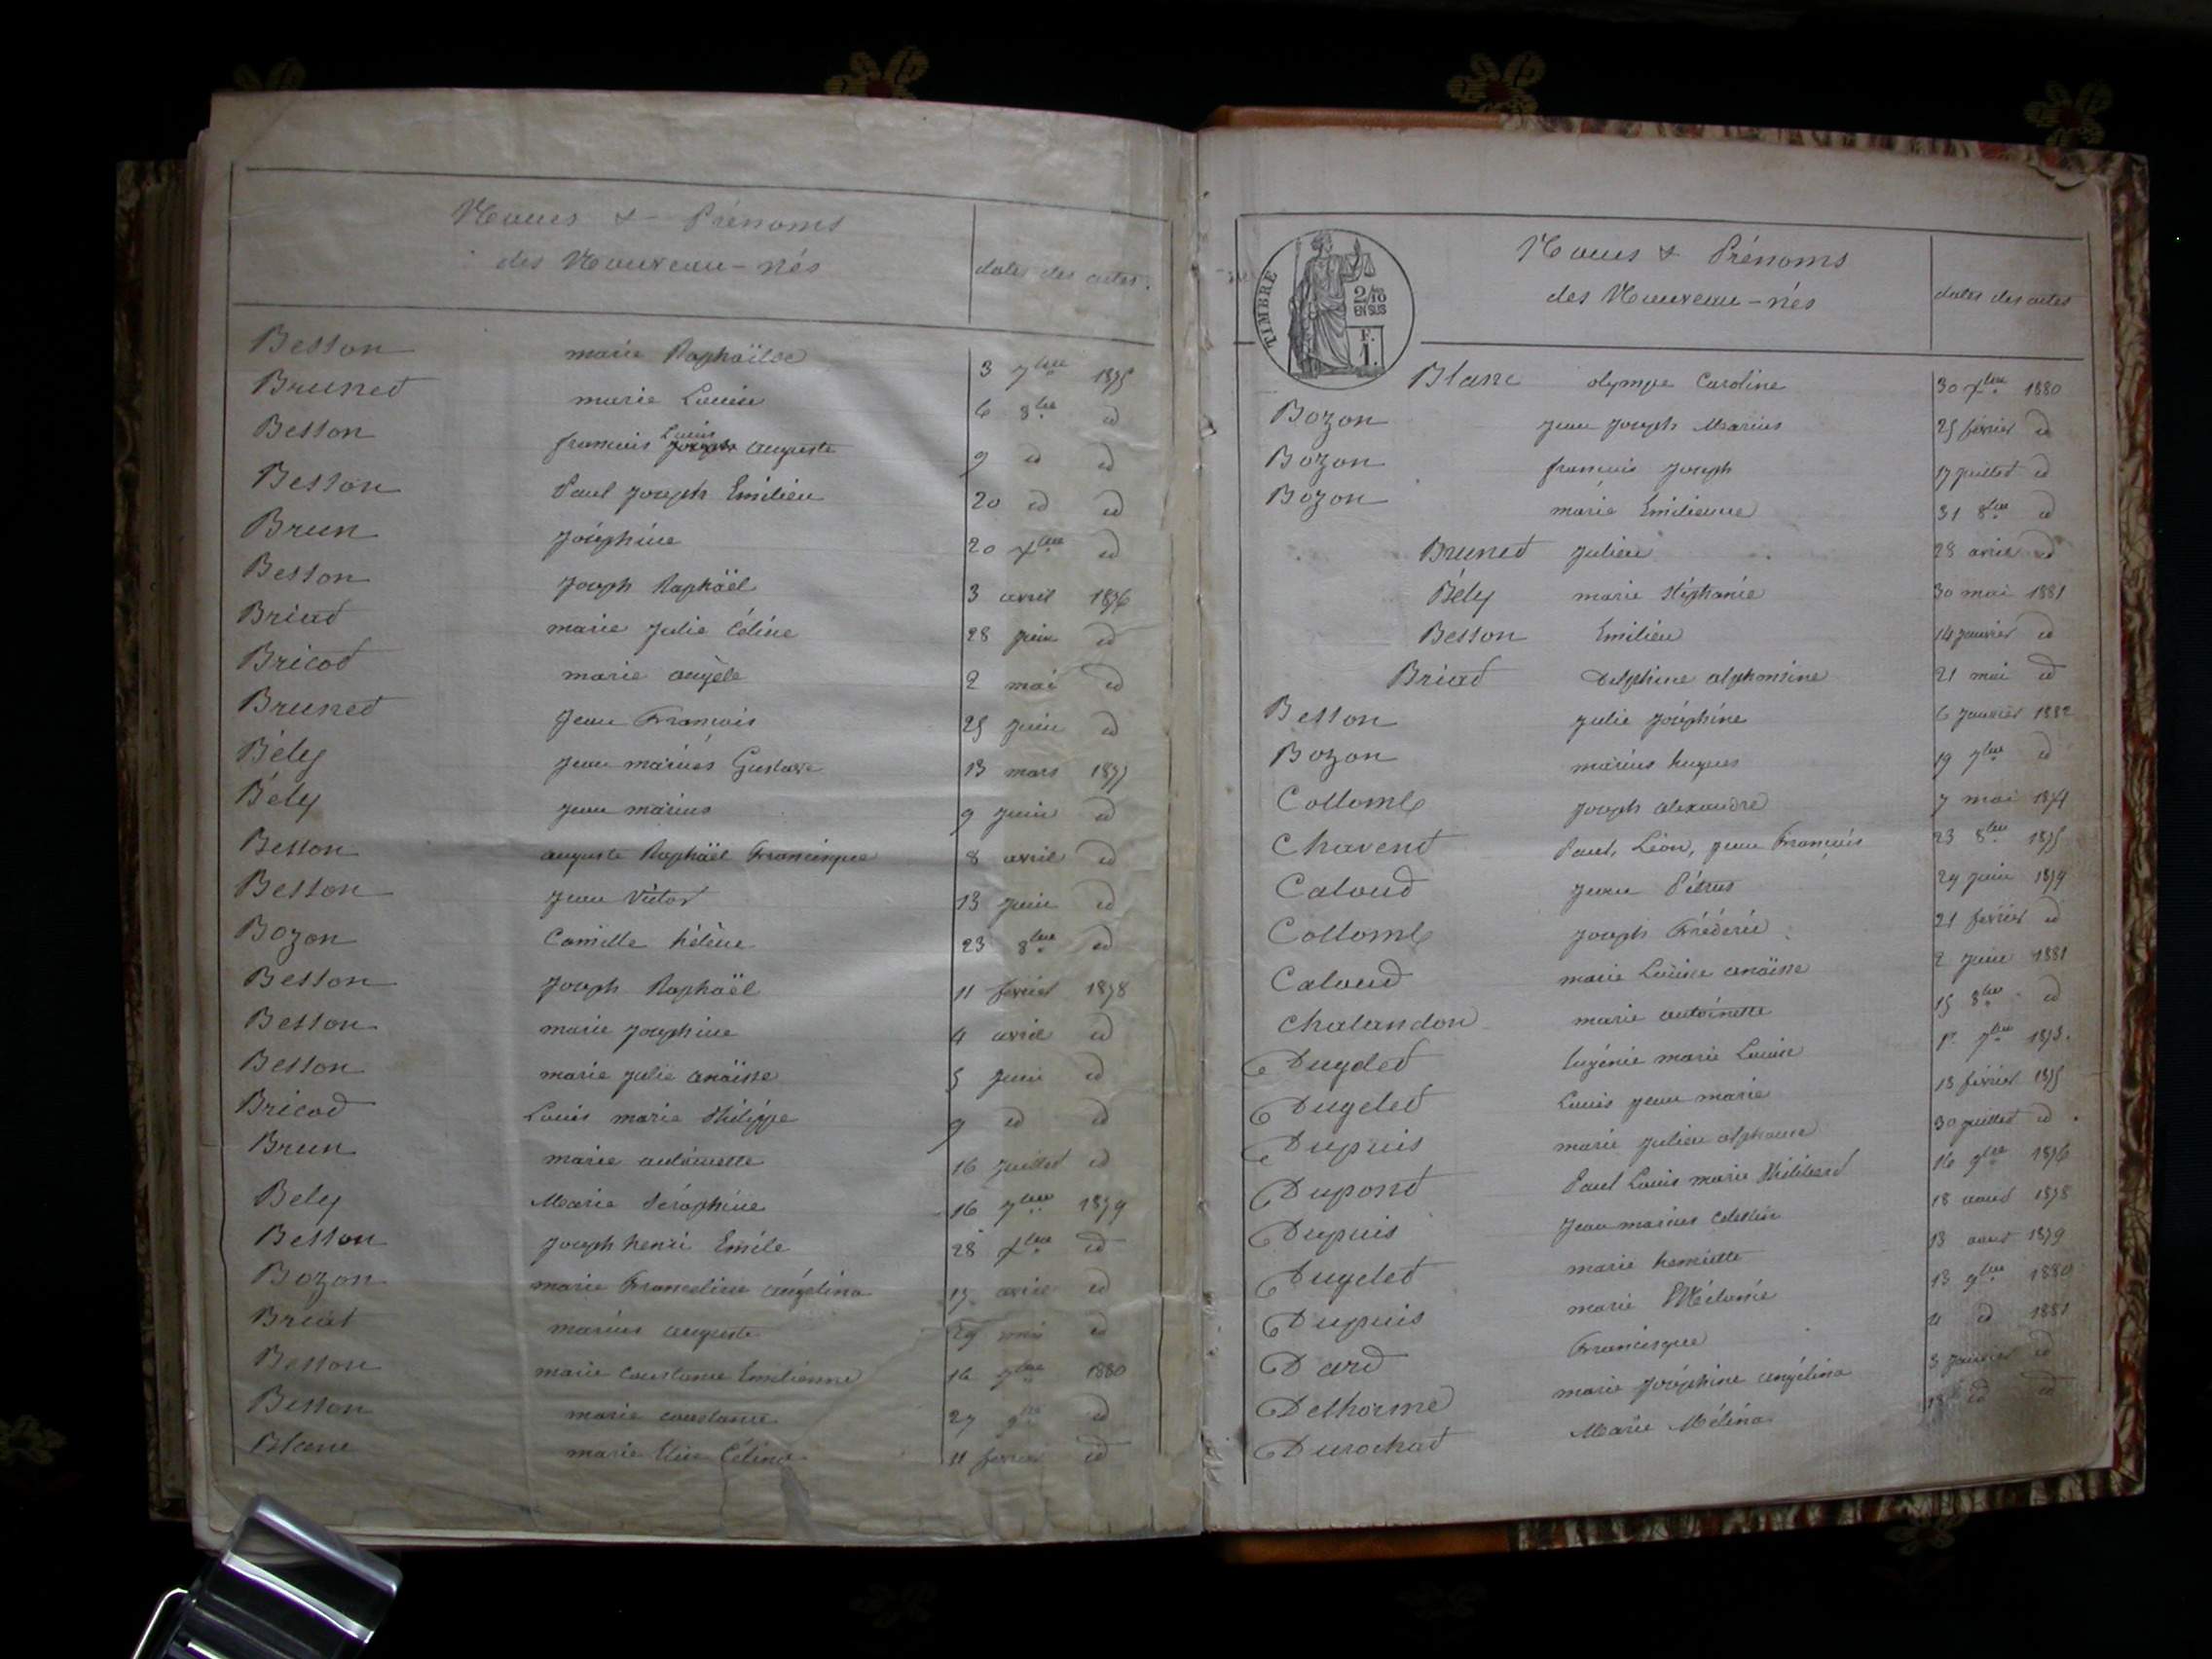 Noms & Prénoms
des Nouveau-nés
dates des actes.
Besson marie Raphaële 3 7bre 1875
Brunet marie Louise 6 8bre id
Besson francois Louis Joseph auguste 9 id id
Besson Paul Joseph Emilien 20 id id
Brun Joséphine 20 Xbre id
Besson Joseph Raphaël 3 avril 1876
Briat marie Julie Céline 28 juin id
Bricod marie angèle 2 mai id
Brunet Jean François 25 juin id
Bély Jean marius Gustave 13 mars 1877
Bély Jean marius 9 juin id
Besson auguste Raphaël Francisque 8 avril id
Besson Jean Victor 13 juin id
Bozon Camille hélène 23 8bre id
Besson Joseph Raphaël 11 février 1878
Besson marie Josephine 4 avril id
Besson marie Julie anaïsse 5 juin id
Bricod Louis marie Philippe 9 id id
Brun marie antoinette 16 juillet id
Bely Marie Séraphine 16 7bre 1879
Besson Joseph henri Emile 28 Xbre id
Bozon marie Franceline angélina 15 avril id
Briat marius auguste 29 mai id
Besson marie Constance Emilienne 16 7bre 1880
Besson marie constance 27 9bre id
Blanc marie Elise Célina 11 février id
TIMBRE
2/10
EN SUS
F.
1.
Noms & Prénoms
des Nouveau-nés
dates des actes
Blanc olympe Caroline 30 Xbre 1880
Bozon Jean Joseph Marius 25 février id
Bozon francois Joseph 17 juillet id
Bozon marie Emilienne 31 8bre id
Brunet Julien 28 avril id
Bély marie Stéphanie 30 mai 1881
Besson Emilien 14 janvier id
Briat Delphine alphonsine 21 mai id
Besson Julie Joséphine 6 Janvier 1882
Bozon marius hugues 19 7bre id
Collomb Joseph alexandre 7 mai 1874
Chavent Paul, Léon, Jean François 23 8bre 1875
Caloud Jean Pétrus 29 juin 1879
Collomb Joseph Frédéric 21 février id
Caloud marie Louise anaïsse 2 juin 1881
Chalandon marie antoinette 15 8bre id
Dugelet Eugénie marie Louise 1er 7bre 1873.
Dugelet Louis Jean marie 13 février 1875
Dupuis marie Julien alphonse 30 juillet id
Dupont Paul Louis marie Philibert 16 9bre 1876
Dupuis Jean marius Célestin 18 aout 1878
Dugelet marie henriette 13 aout 1879
Dupuis marie Mélanie 13 9bre 1880
Dard Francisque 4 id 1881
Delhorme marie Joséphine angélina 3 Janvier id
Durochat Marie Mélina 18 id id